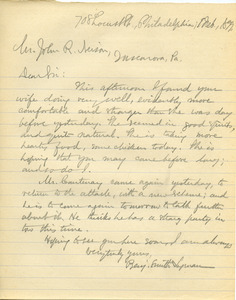 708 Locust St., Philadelphia,
Mr. John R. Nissin,
Tuscarora, Pa.
Dear Sir:
This afternoon I found your
wife doing very well, evidently more
comfortable and stronger than she was day
before yesterday. She seemed in good spirits,
and quite natural. She is taking more
hearty food, some chicken today. She is
hoping that you may come before long;
and so do I.
Mr. Courtenay came again yesterday, to
return to the attack, with a new scheme; and
he is to come again tomorrow to talk further
about it. He thinks he has a strong party in
tow this time.
Hoping to see you here soon, I am always
Very truly yours,
Benj. Smith Lyman